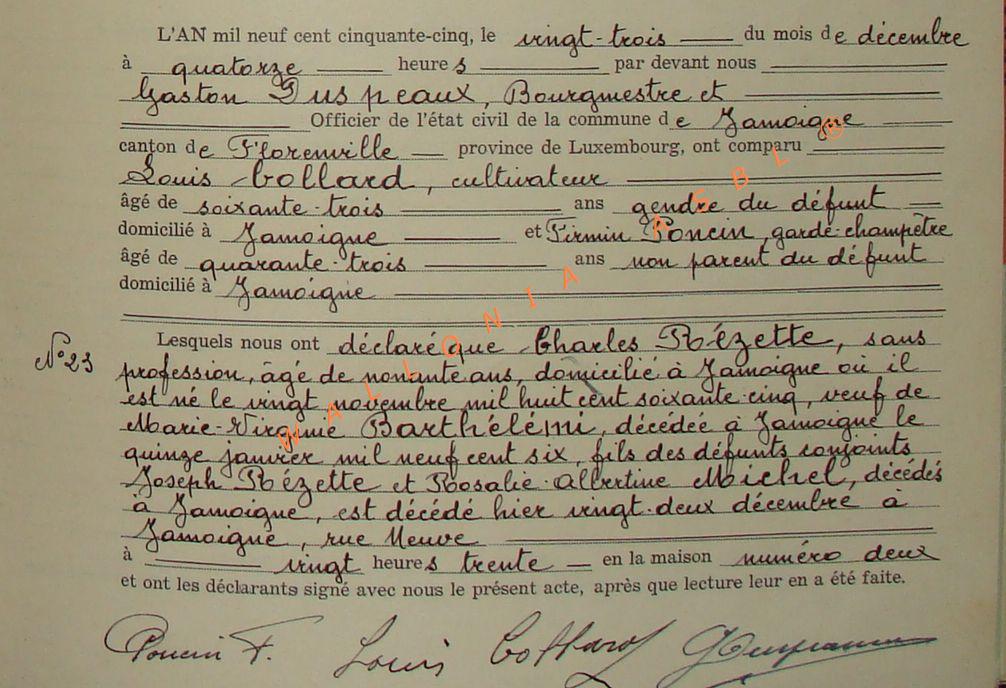 L'AN mil neuf cent cinquante-cinq, le vingt-trois du mois de décembre
à quatorze heures par devant nous
Gaston Duspeaux, Bourgmestre et
Officier de l'état civil de la commune de Jamoigne
canton de Florenville province de Luxembourg, ont comparu
Louis Collard, cultivateur
âgé de soixante-trois ans gendre du défunt
domicilié à Jamoigne et Firmin Poncin, garde-champêtre
âgé de quarante-trois ans non parent du défunt
domicilié à Jamoigne
Lesquels nous ont déclaré que Charles Rézette, sans
N° 23
profession, âgé de nonante ans, domicilié à Jamoigne où il
est né le vingt novembre mil huit cent soixante-cinq, veuf de
Marie-Virginie Barthélémi, décédée à Jamoigne le
quinze janvier mil neuf cent six, fils des défunts conjoints
Joseph Rézette et Rosalie-Albertine Michel, décédés
à Jamoigne, est décédé hier vingt-deux décembre à
Jamoigne, rue Neuve
à vingt heures trente en la maison numéro deux
et ont les déclarants signé avec nous le présent acte, après que lecture leur en a été faite.
Poncin F. Louis Collard
WALLONIA